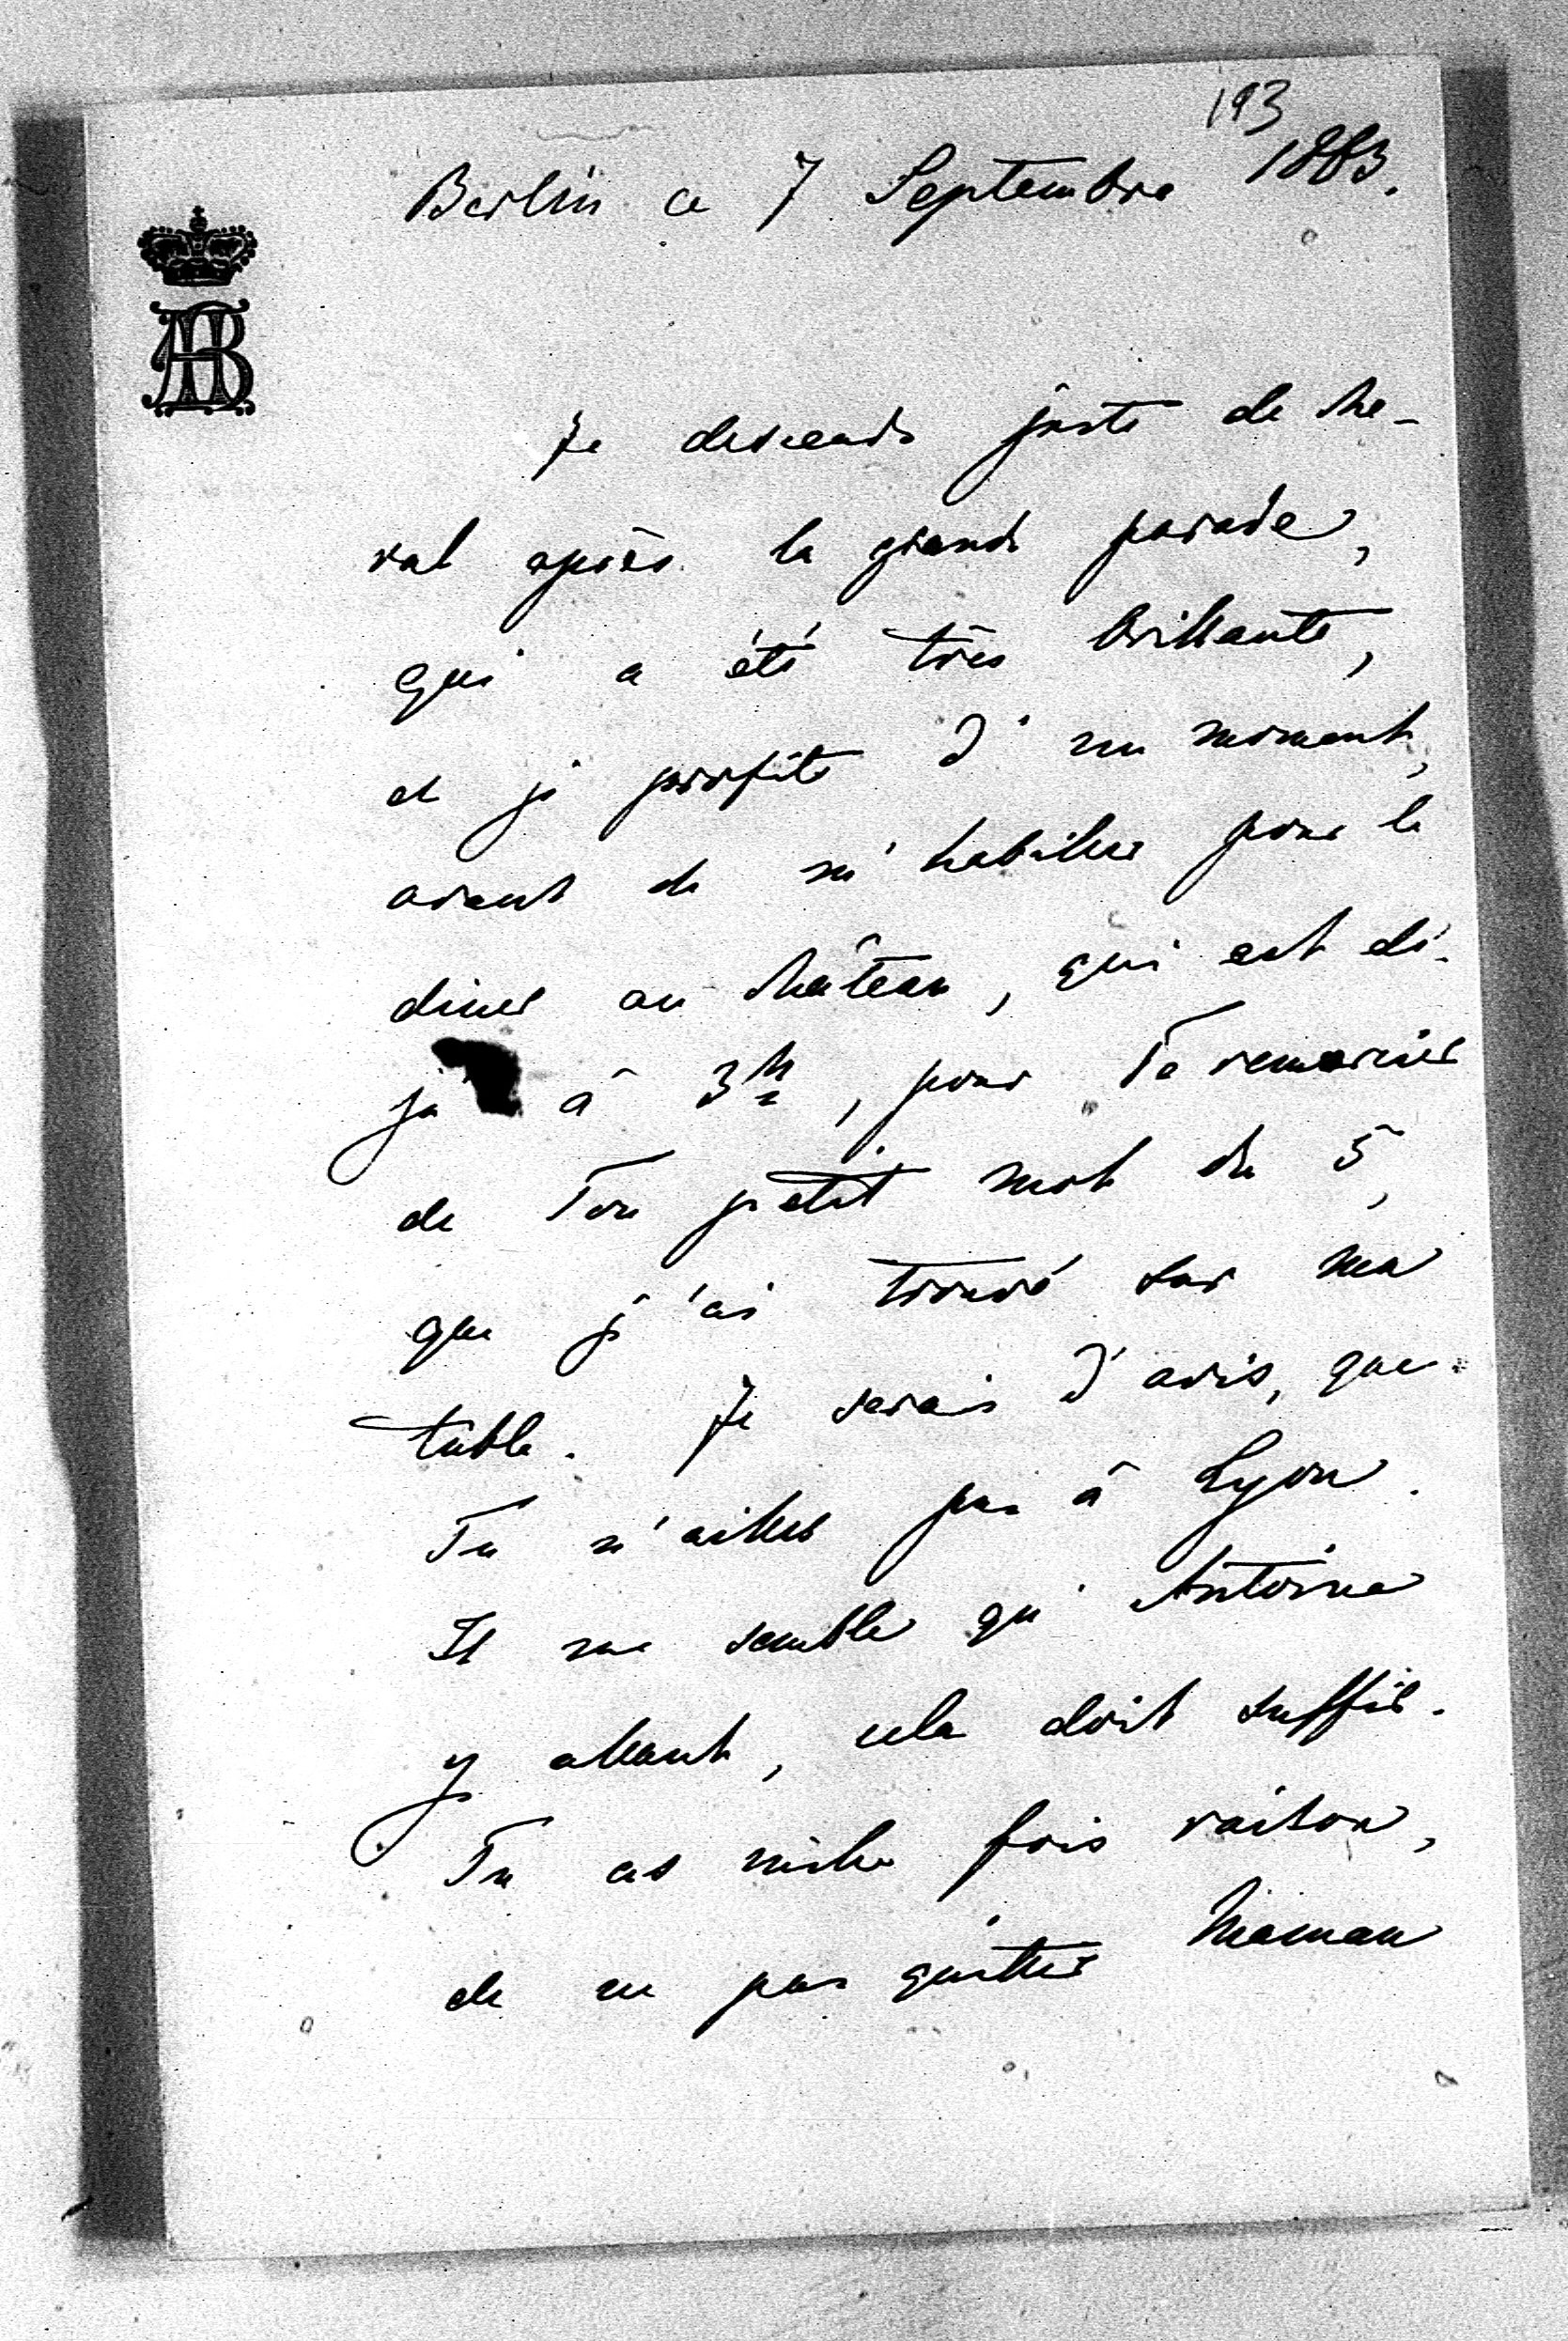 193
Berlin ce 7 Septembre 1883.
AB
Je descends juste de che-
val après la grande parade,
qui a été très brillante,
et je profite d'un moment,
avant de m'habiller pour le
diner au château, qui est dé-
jà à 3h, pour Te remercier
de Ton petit mot du 5,
que j'ai trouvé sur ma
table. Je serais d'avis, que
Tu n'ailles pas à Lyon.
Il me semble qu'Antoine
y allant, cela doit suffir.
Tu as mille fois raison,
de ne pas quitter Maman